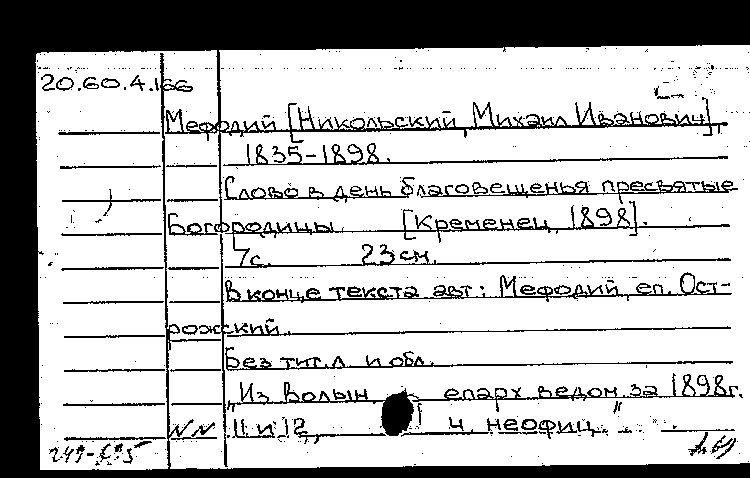 20.60.4.166
Мефодий [Никольский, Михаил Иванович],
1835-1898.
Слово в день благовещенья пресвятые
Богородицы. [Кременец, 1898].
7с. 23см.
В конце текста авт: Мефодий, еп. Ост-
рожский.
Без тит.л. и обл.
„Из Волын епарх ведом. за 1898г.
NN 11 и 12, ч. неофиц."